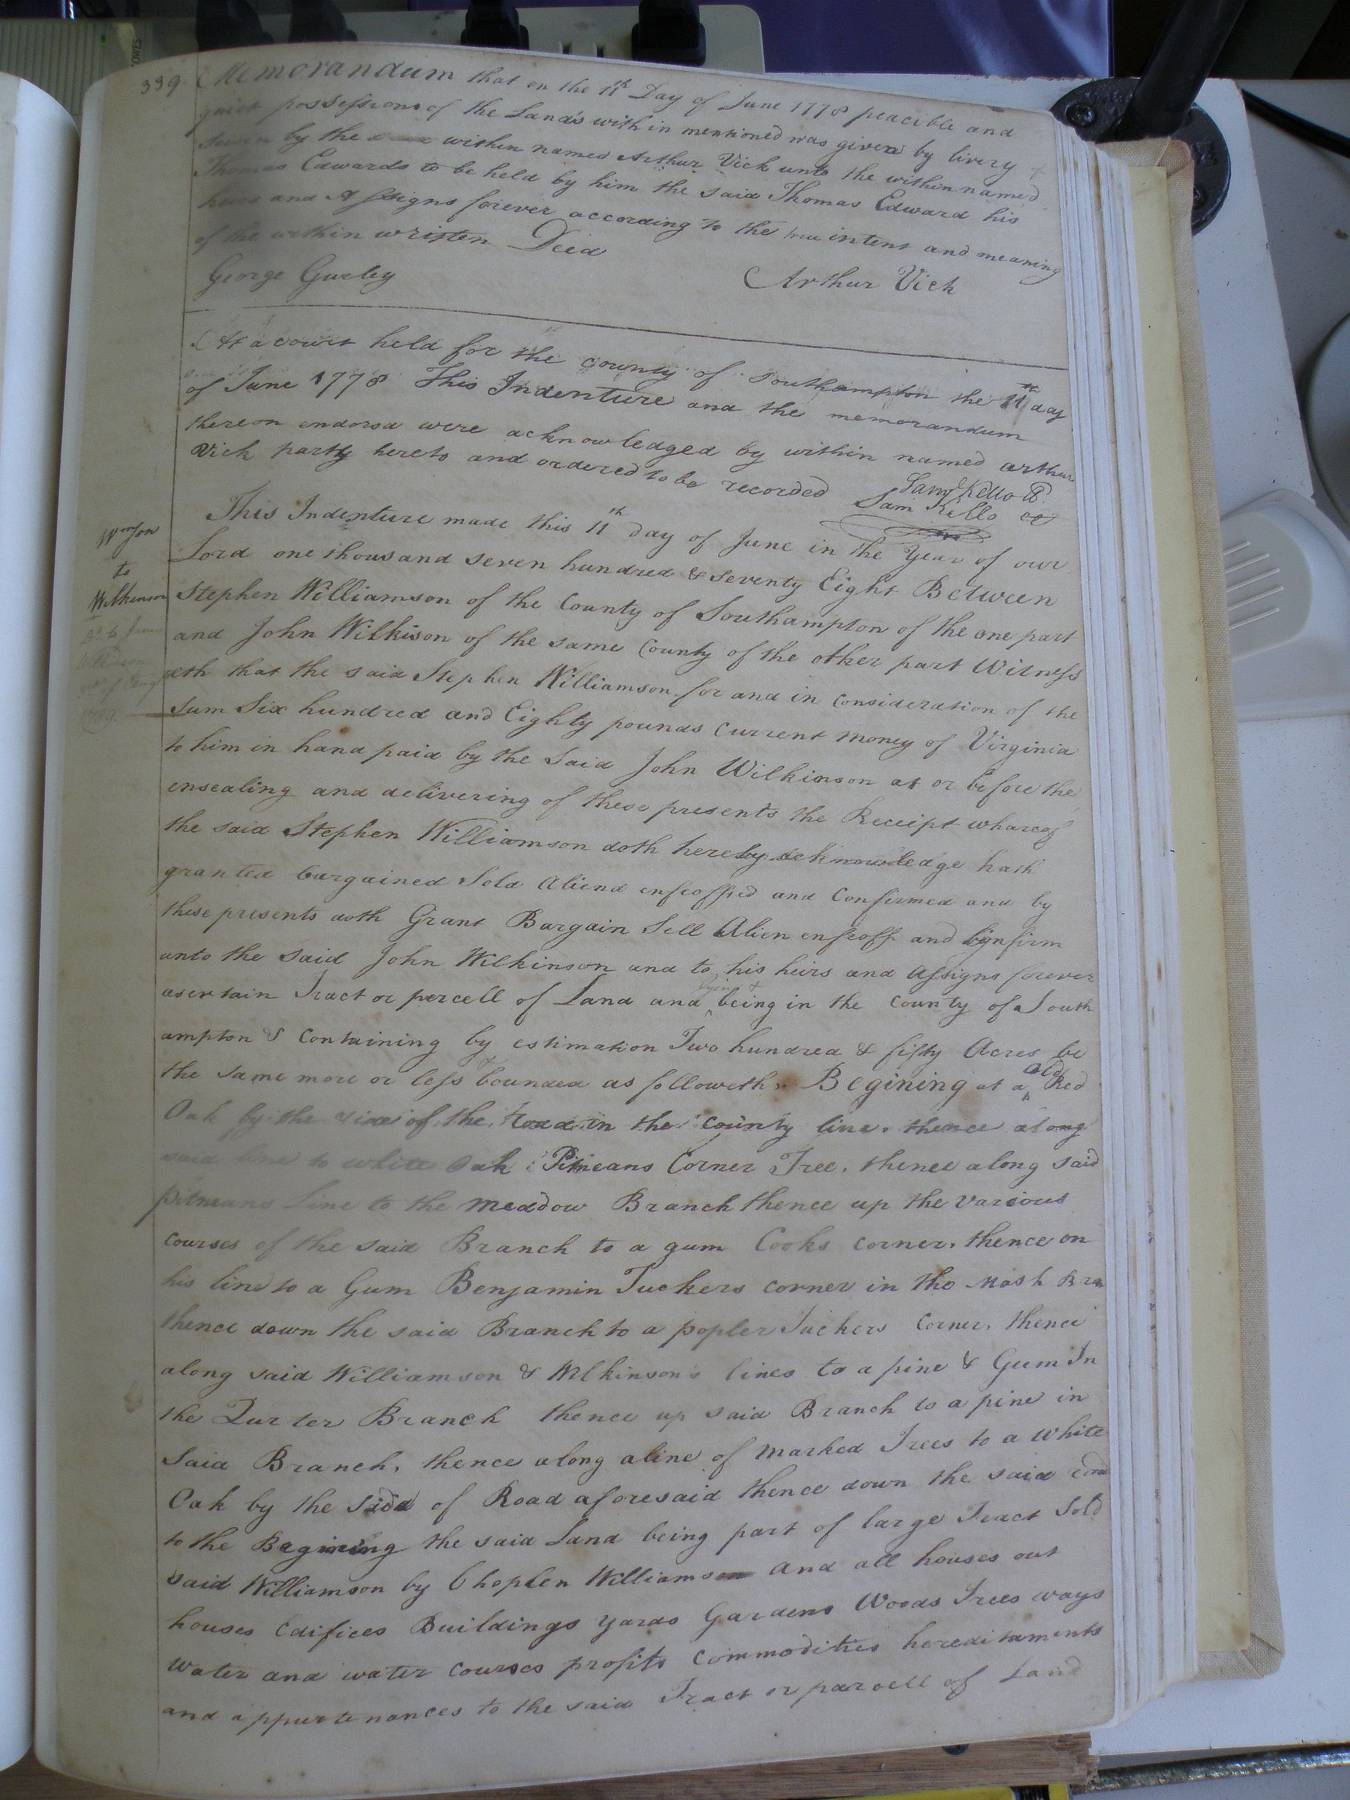 339. Memorandum that on the 11th Day of June 1778 peacible and
quiet possessions of the Lands within mentioned was given by livery &
by the within named Arthur Vick unto the within named
Thomas Edwards to be held by him the said Thomas Edward his
heirs and Assigns forever according to the true intent and meaning
of the within written Deed
George Gurley Arthur Vick
At a court held for the county of Southampton the 11th day
of June 1778 This Indenture and the memorandum
thereon endorsd were acknowledged by within named Arthur
Vick party hereto and ordered to be recorded
Saml Kello
Sam Kello cc
This Indenture made this 11th day of June in the Year of our
Lord one thousand seven hundred & seventy Eight Between
to
Wilkinson
Stephen Williamson of the County of Southampton of the one part
and John Wilkison of the same County of the other part Witness
eth that the said Stephen Williamson for and in consideration of the
Sum Six hundred and Eighty pounds Current Money of Virginia
to him in hand paid by the Said John Wilkinson at or before the
ensealing and delivering of these presents the Receipt whareof
the said Stephen Williamson doth hereby acknowledge hath
granted bargained Sold Aliend enfeoffed and Confirmed and by
these presents doth Grant Bargain Sell Alien enfeoff and Confirm
unto the said John Wilkinson and to his heirs and Assigns forever
a certain Tract or percell of Land and being in the County of South
ampton & Containing by estimation Two hundred & fifty Acres be
the same more or less bounded as followeth. Begining at a Red
Oak by the side of the road in the county line. thence along
said line to white Oak Pitmans Corner Tree. thence along said
pitmans line to the Meaddow Branch thence up the various
courses of the said Branch to a gum Cooks corner. thence on
his line to a Gum Benjamin Tuckers corner in the Mash Bra
thence down the said Branch to a popler Tuckers Corner. thence
along said Williamson & Wilkinson's lines to a pine & Gum In
the Qurter Branch thence up said Branch to a pine in
Said Branch, thence along a line of marked Trees to a white
Oak by the side of Road aforesaid thence down the said road
to the Begining the said Land being part of large Tract Sold
said Williamson by Williamson and all houses out
houses Edifices Buildings yards Gardens Woods Trees ways
water and water courses profits commodities hereditaments
and appurtenances to the said Tract or parcell of Land